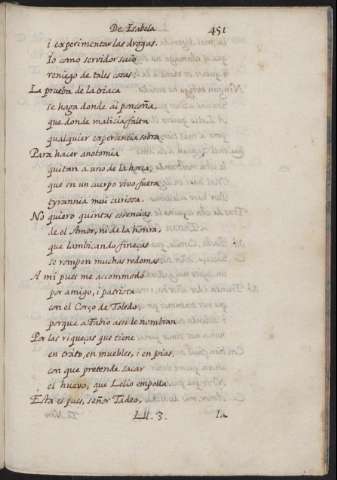 De Esabela 451
i experimentar las drogas.
Io como servidor suio
reniego de tales cosas
La prueba de la triaca
se haga donde ai ponçoña,
que donde malicia falta
qualquier experiencia sobra.
Para hacer anotomia
quitan a uno de la horca,
que en un cuerpo vivo fuera
tyrannia mui curiosa.
No quiero quintas essencias
de el Amor, ni de la honra,
que lambicando finezas
se rompen muchas redomas
A mi pues me accommodo
por amigo, i patriota
con el Corço de Toledo
porque a Fabio assi le nombran
Por las riqueças que tiene
en trato, en muebles, i en pias,
con que pretende sacar
el huevo, que Lelio empolla
Esta es pues, señor Tadeo,
Lll. 3. La